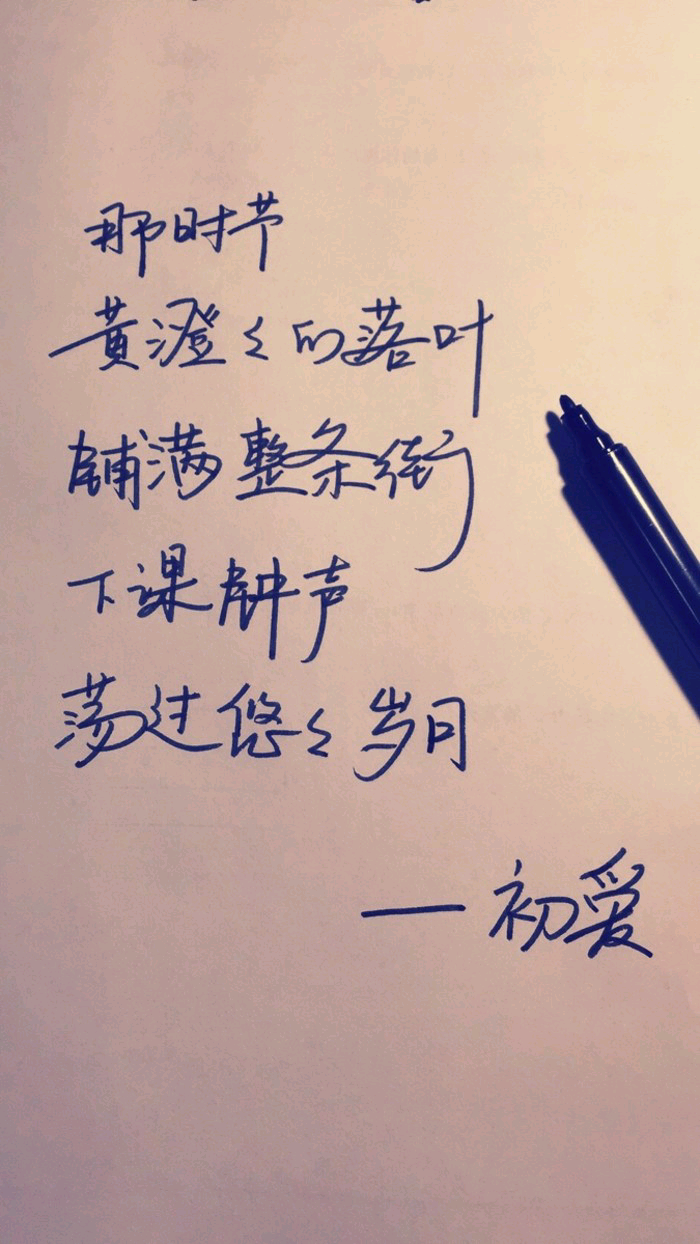 那时节
黄澄々的落叶
铺满整条街
下课钟声
荡过悠々岁月
— 初爱